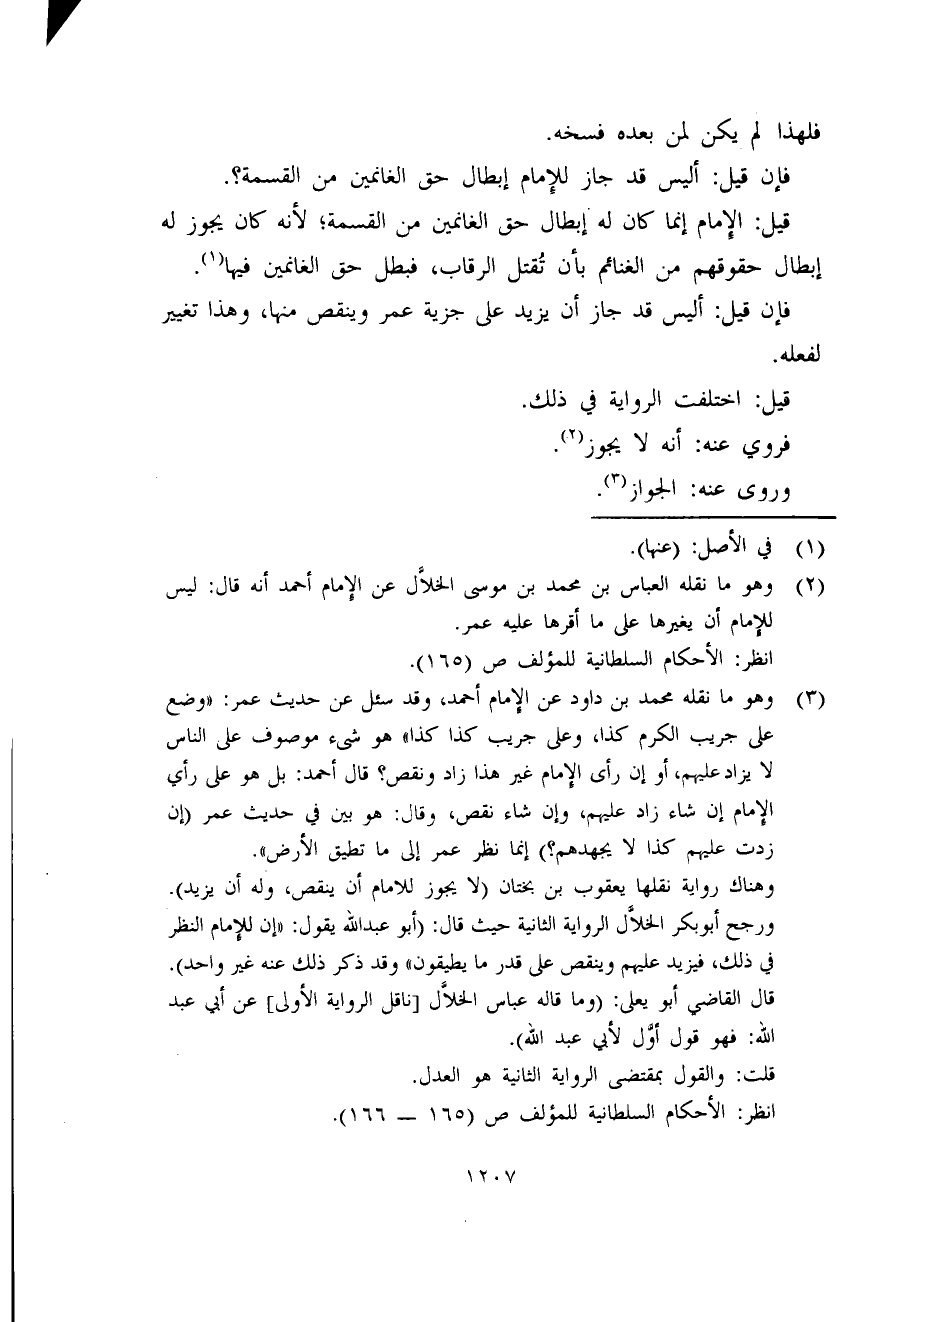 فلهذا لم يكن لمن بعده فسخه.
فإن قيل: أليس قد جاز للإمام إبطال حق الغانمين من القسمة؟.
قيل: الإمام إنما كان له إبطال حق الغانمين من القسمة؛ لأنه كان يجوز له
إبطال حقوقهم من الغنائم بأن تُقتل الرقاب، فبطل حق الغانمين فيها(١).
فإن قيل: أليس قد جاز أن يزيد على جزية عمر وينقص منها، وهذا تغيير
لفعله.
قيل: اختلفت الرواية في ذلك.
فروي عنه: أنه لا يجوز(٢).
وروى عنه: الجواز(٣).
(١) في الأصل: (عنها).
(٢) وهو ما نقله العباس بن محمد بن موسى الخلاَّل عن الإمام أحمد أنه قال: ليس
للإمام أن يغيرها على ما أقرها عليه عمر.
انظر: الأحكام السلطانية للمؤلف ص (١٦٥).
(٣) وهو ما نقله محمد بن داود عن الإمام أحمد، وقد سئل عن حديث عمر: «وضع
على جريب الكرم كذا، وعلى جريب كذا كذا» هو شيء موصوف على الناس
لا يزاد عليهم، أو إن رأى الإمام غير هذا زاد ونقص؟ قال أحمد: بل هو على رأي
الإمام إن شاء زاد عليهم، وإن شاء نقص، وقال: هو بين في حديث عمر (إن
زدت عليهم كذا لا يجهدهم؟) إنما نظر عمر إلى ما تطيق الأرض».
وهناك رواية نقلها يعقوب بن بختان (لا يجوز للامام أن ينقص، وله أن يزيد).
ورجح أبوبكر الخلاَّل الرواية الثانية حيث قال: (أبو عبدالله يقول: «إن للإمام النظر
في ذلك، فيزيد عليهم وينقص على قدر ما يطيقون» وقد ذكر ذلك عنه غير واحد).
قال القاضي أبو يعلى: (وما قاله عباس الخلاَّل [ناقل الرواية الأولى] عن أبي عبد
الله: فهو قول أوَّل لأبي عبد الله).
قلت: والقول بمقتضى الرواية الثانية هو العدل.
انظر: الأحكام السلطانية للمؤلف ص (١٦٥ ــ ١٦٦).
١٢٠٧